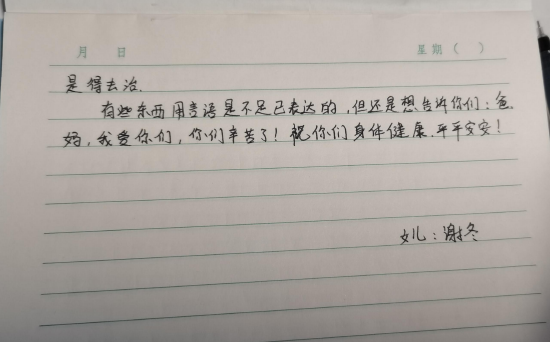 月 日 星期( )
是得去治.
有些东西用言语是不足已表达的,但还是想告诉你们:爸
妈,我爱你们,你们辛苦了!祝你们身体健康.平平安安!
女儿:谢冬